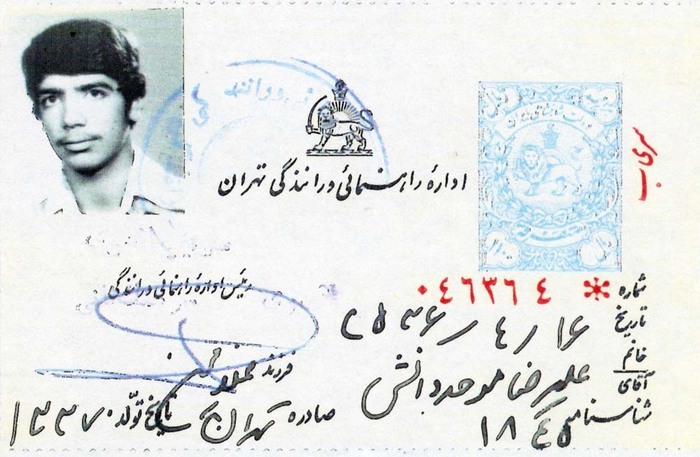 اداره راهنمائی و رانندگی تهران
سری ب
رئیس اداره راهنمائی و رانندگی
شماره * ۰۴۶۳۶۴
تاریخ ۱۶/۴/۲۵۳۶
خانم
آقای علیرضا موحددانش
فرزند
شناسنامه ۱۸۴۵ صادره تهران تاریخ تولد ۱۳۳۷